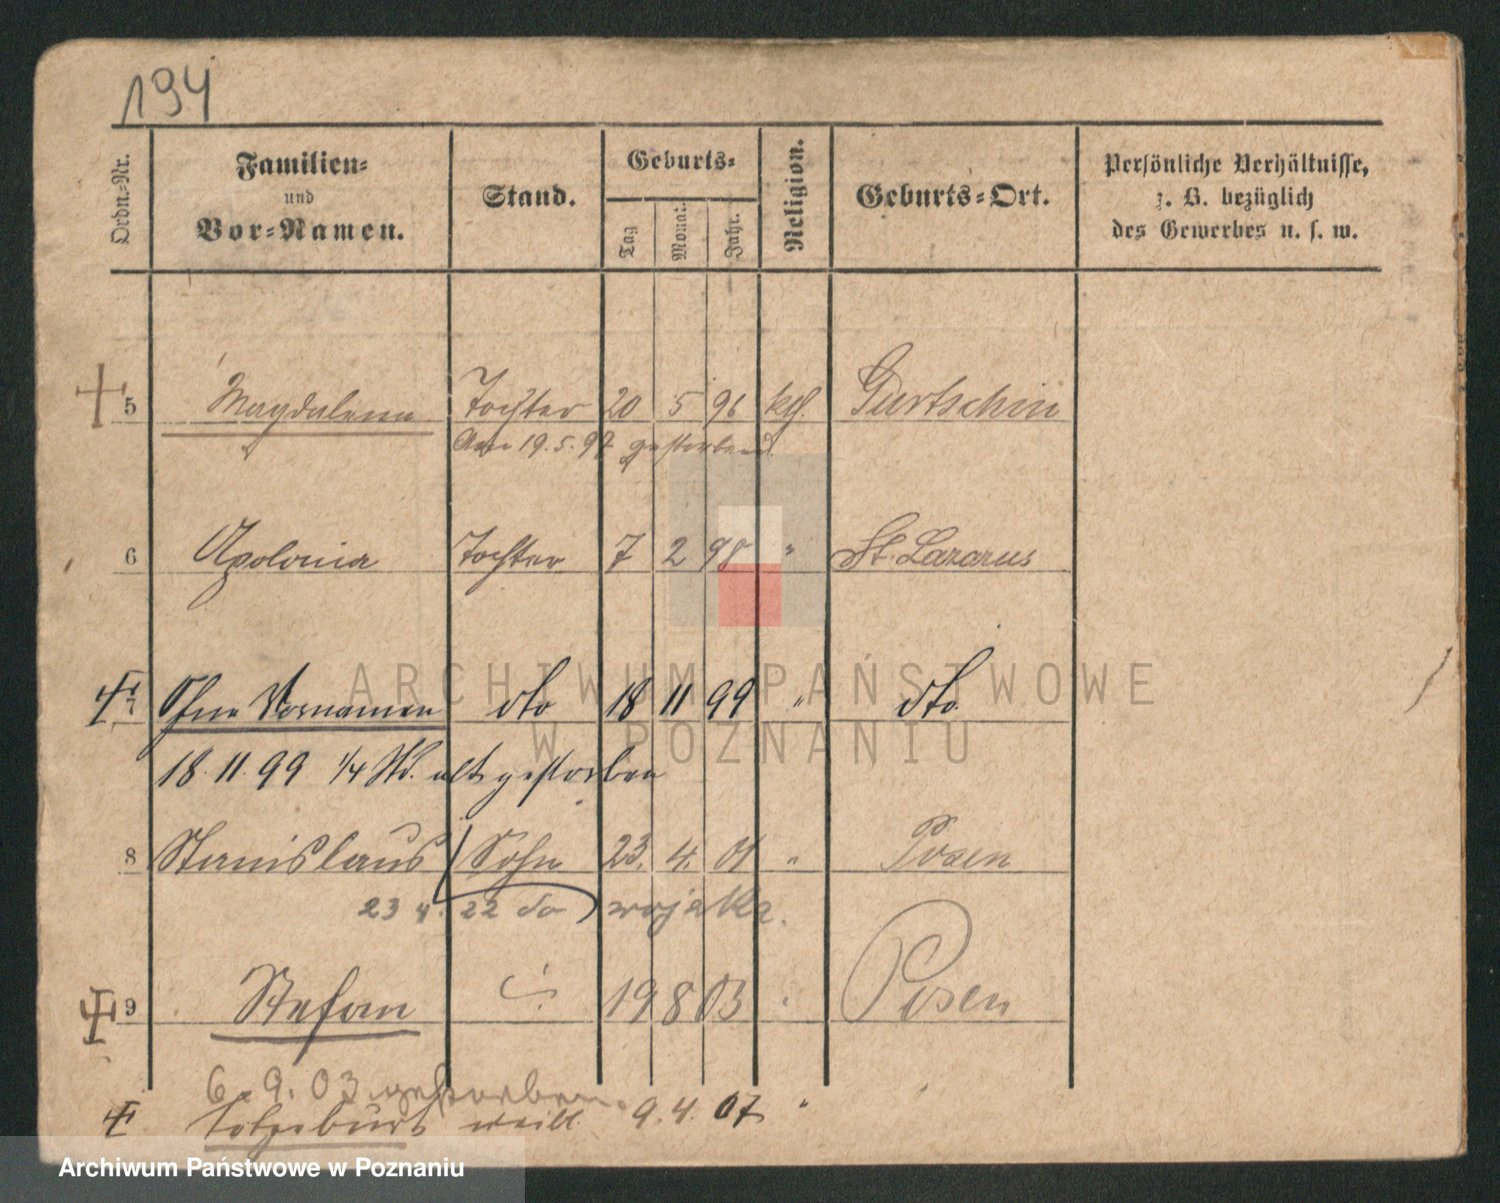 194
Ordn.-Nr. Familien- und Vor-Namen. Stand. Geburts- Tag Monat. Jahr. Religion. Geburts-Ort. Persönliche Verhältnisse, z. B. bezüglich des Gewerbes u. s. w.
5 Magdalena Tochter 20 5 96 kth. Gurtschin
Am 19.5.97 gestorben
6 Apolonia Tochter 7 2 98 " St. Lazarus
7 Ohne Vornamen dto 18 11 99 " dto.
18.11.99 1/4 Std. alt gestorben
8 Stanislaus Sohn 23. 4. 01 " Posen
23 4. 22 do wojska.
9 Stefan " 19 8 03 " Posen
6. 9. 03 gestorben.
Totgeburt weibl. 9.4.07 "
ARCHIWUM PAŃSTWOWE
W POZNANIU
Archiwum Państwowe w Poznaniu